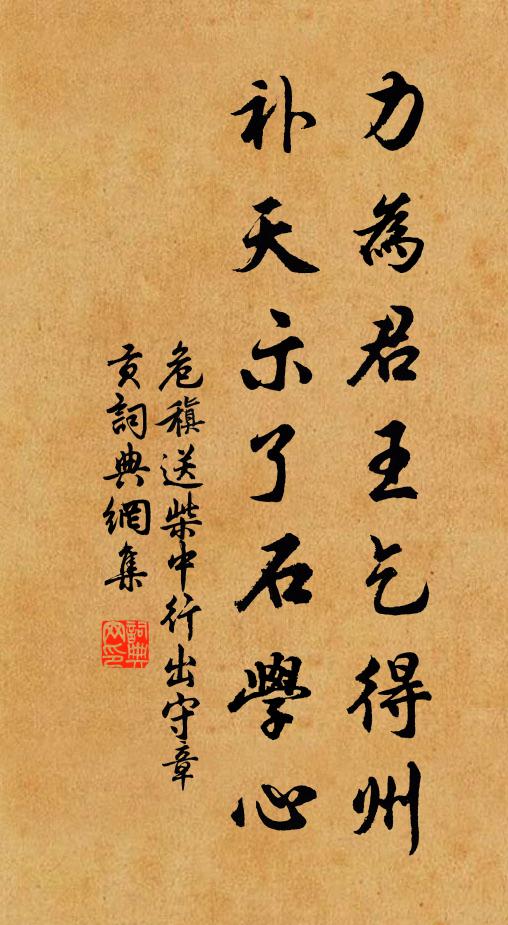 力為君王乞得州
补天示了石學心
危稹送柴中行出守章
贡詞典網集
詞典网印